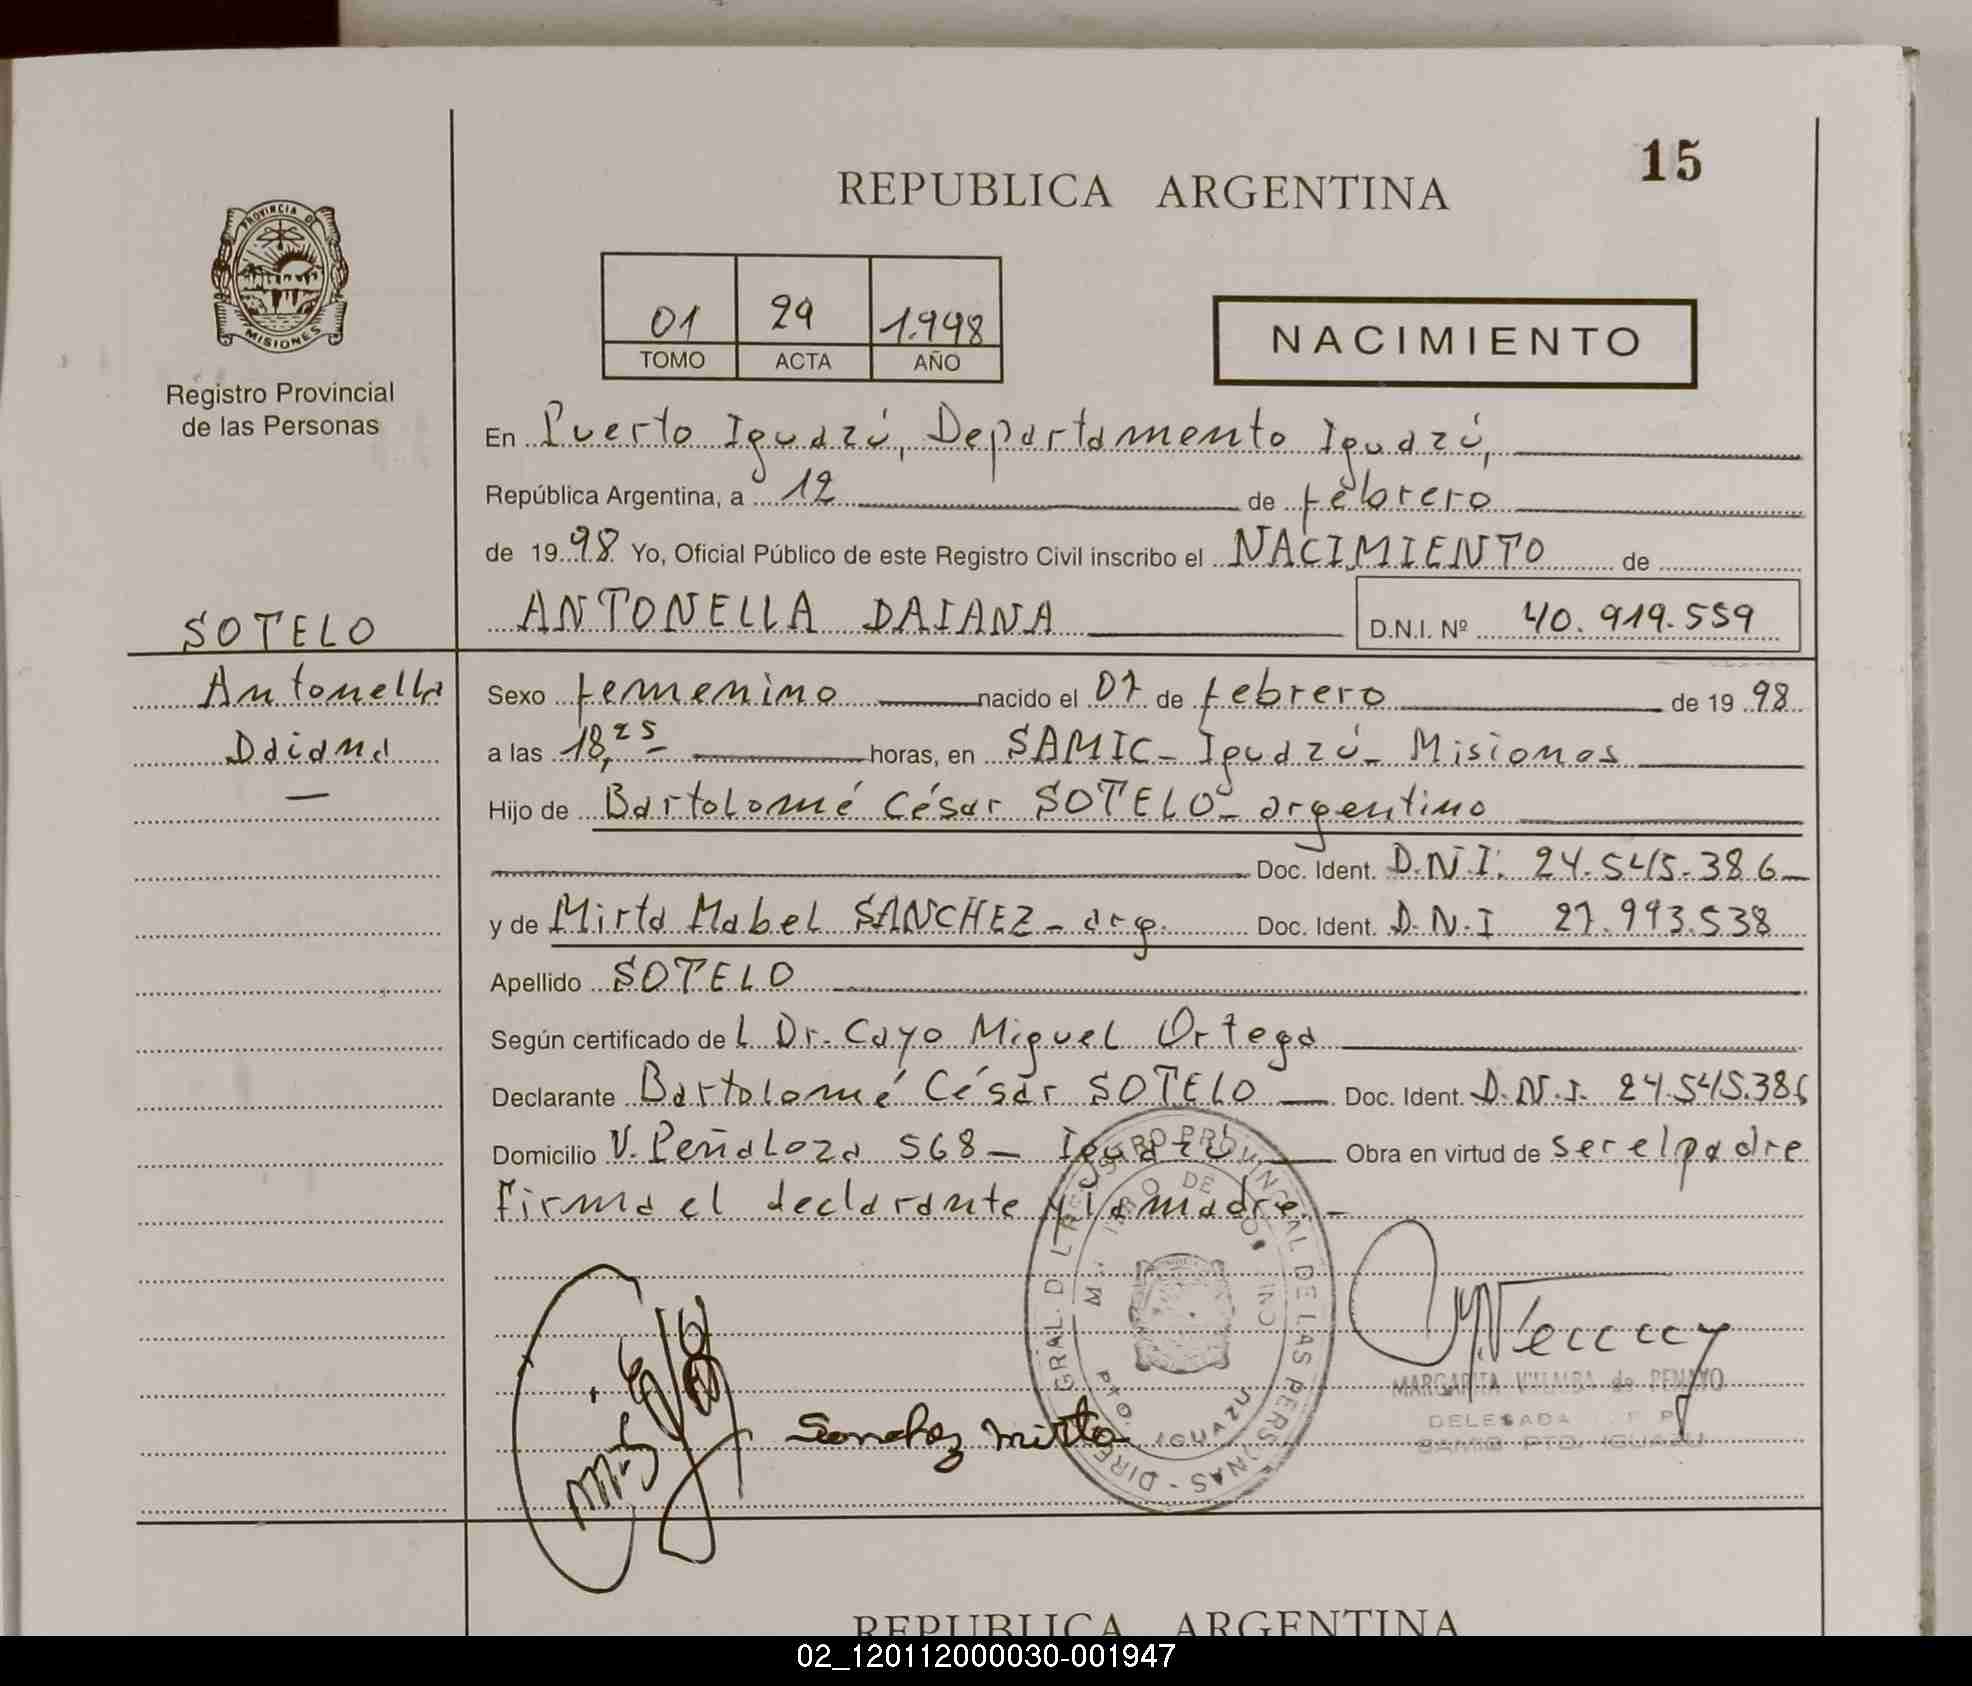 15
REPUBLICA ARGENTINA
PROVINCIA DE
MISIONES
Registro Provincial
de las Personas
01 29 1.998
TOMO ACTA AÑO
NACIMIENTO
En Puerto Iguazú, Departamento Iguazú,
República Argentina, a 12 de febrero
de 1998 Yo, Oficial Público de este Registro Civil inscribo el NACIMIENTO de
ANTONELLA DAIANA D.N.I. Nº 40.919.559
SOTELO
Antonella
Daiana
Sexo femenino nacido el 07 de febrero de 1998
a las 18,25 horas, en SAMIC - Iguazú - Misiones
Hijo de Bartolomé César SOTELO - argentino
Doc. Ident. D.N.I. 24.545.386
y de Mirta Mabel SANCHEZ - arg. Doc. Ident. D.N.I 27.993.538
Apellido SOTELO
Según certificado de L Dr. Cayo Miguel Ortega
Declarante Bartolomé César SOTELO Doc. Ident. D.N.I. 24.545.386
Domicilio V. Peñaloza 568 - Iguazú Obra en virtud de ser el padre
firma el declarante y la madre. -
Sanchez mirta
DIREC GRAL. D L REGISTRO PROVINCIAL DE LAS PERSONAS -
PTO. IGUAZU
MARGARITA VILLALBA de PENAYO
DELEGADA
SAMIC PTO. IGUAZU
REPUBLICA ARGENTINA
02_120112000030-001947